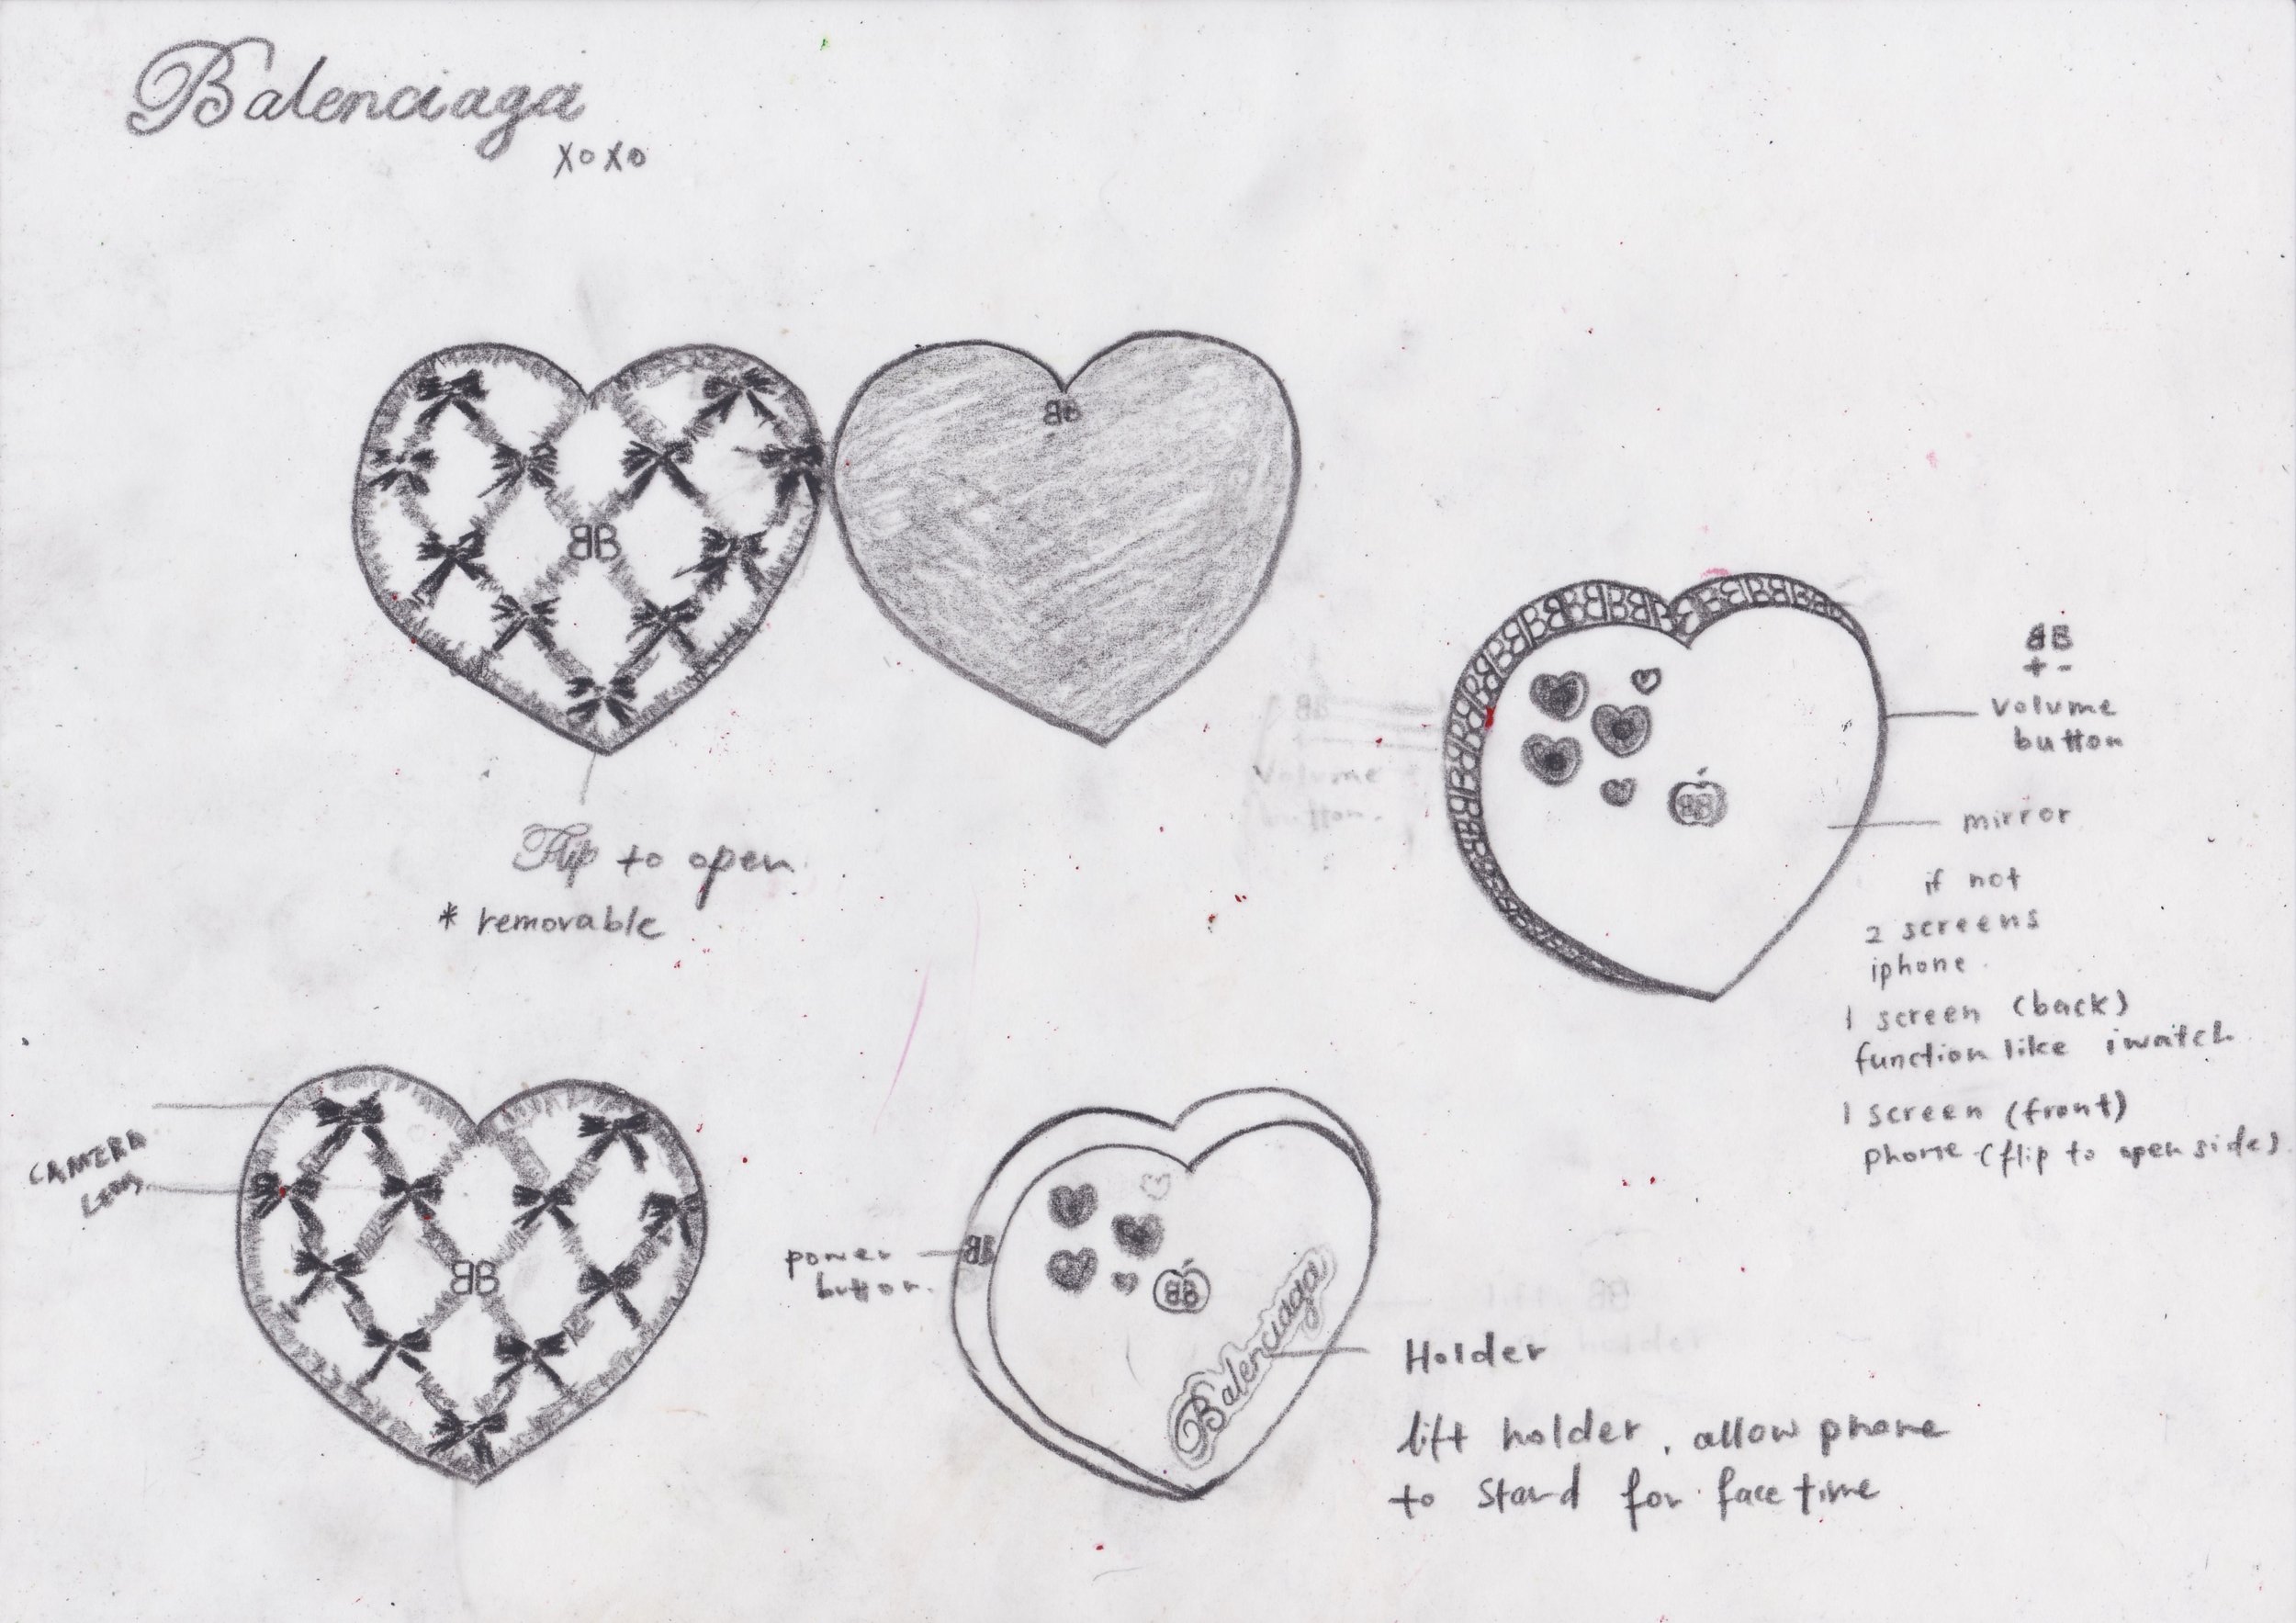 Balenciaga
xoxo
BB
BB
Flip to open
* removable
BB
+ -
volume
button
BB
volume
button.
mirror
if not
2 screens
iphone.
1 screen (back)
function like iwatch
1 screen (front)
phone (flip to open side)
CAMERA
BB
power
button.
BB
BB
Balenciaga
Holder
lift holder, allow phone
to stand for facetime